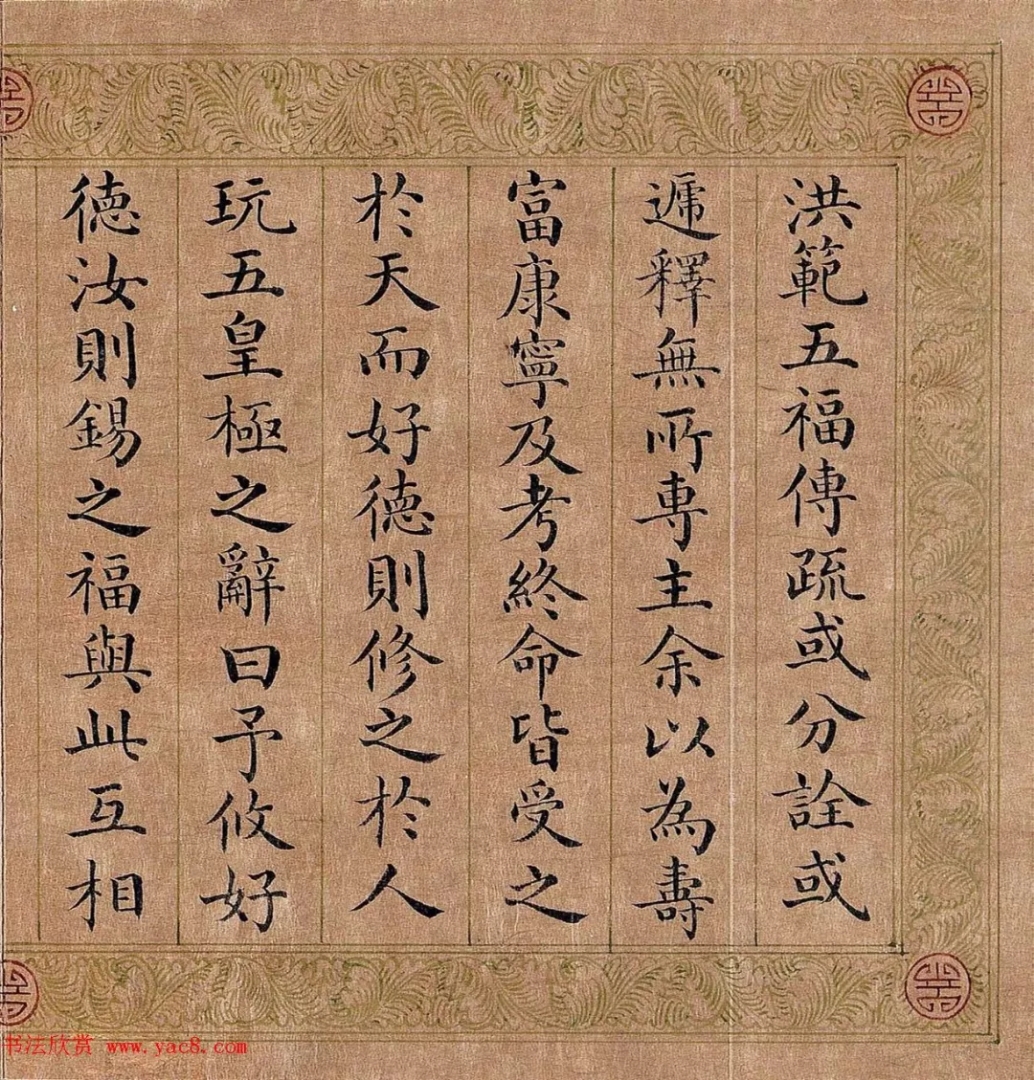 洪範五福傳疏或分詮或
遞釋無所専主余以為壽
富康寧及考終命皆受之
於天而好德則修之於人
玩五皇極之辭曰予攸好
德汝則錫之福與此互相
书法欣赏 www.yac8.com